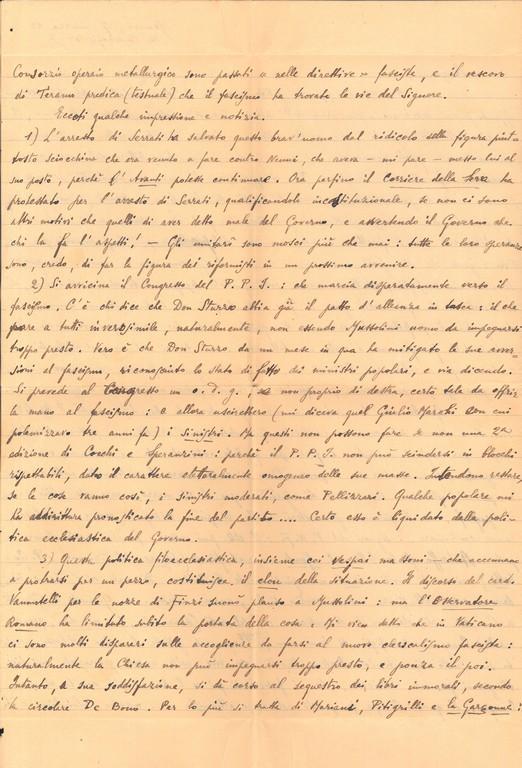 Consorzio operaio metallurgico sono passati « nelle direttive » fasciste, e il vescovo
di Teramo predica (testuale) che il fascismo ha trovato le vie del Signore.
Eccoti qualche impressione e notizia.
1) L'arresto di Serrati ha salvato questo brav'uomo dal ridicolo della figura piut-
tosto sciocchina che era venuto a fare contro Nenni, che aveva — mi pare — messo lui al
suo posto, perchè l'Avanti potesse continuare. Ora perfino il Corriere della Sera ha
protestato per l'arresto di Serrati, qualificandolo incostituzionale, se non ci sono
altri motivi che quelli di aver detto male del Governo, e avvertendo il Governo che
chi la fa l'aspetti! — Gli unitari sono mosci più che mai: tutte le loro speranze
sono, credo, di far la figura dei riformisti in un prossimo avvenire.
2) Si avvicina il Congresso del P.P.I.: che marcia disperatamente verso il
fascismo. C'è chi dice che Don Sturzo abbia già il patto d'alleanza in tasca: il che
pare a tutti inverosimile, naturalmente, non essendo Mussolini uomo da impegnarsi
troppo presto. Vero è che Don Sturzo da un mese in qua ha mitigato le sue avver-
sioni al fascismo, riconosciuto lo stato di fatto dei ministri popolari, e via dicendo.
Si prevede al Congresso un o.d.g., se non proprio di destra, certo tale da offrir
la mano al fascismo: e allora uscirebbero (mi diceva quel Giulio Marchi con cui
polemizzavo tre anni fa) i sinistri. Ma questi non possono fare se non una 2a
edizione di Cocchi e Speranzini: perchè il P.P.I. non può scindersi in blocchi
rispettabili, dato il carattere elettoralmente omogeneo delle sue masse. Intendono restare,
se le cose vanno così, i sinistri moderati, come Pellizzari. Qualche popolare mi
ha addirittura pronosticato la fine del partito .... Certo esso è liquidato dalla poli-
tica ecclesiastica del Governo.
3) Questa politica filoecclesiastica, insieme coi vespai massoni — che accennano
a protrarsi per un pezzo, costituisce il clou della situazione. Il discorso del card.
Vannutelli per le nozze di Finzi suonò plauso a Mussolini: ma l'Osservatore
Romano ha limitato subito la portata della cosa. Mi vien detto che in Vaticano
ci sono molti dispareri sulle accoglienze da farsi al nuovo clericalismo fascista:
naturalmente la Chiesa non può impegnarsi troppo presto, e ponza il poi.
Intanto, a sua soddisfazione, si dà corso al sequestro dei libri immorali, secondo
la circolare De Bono. Per lo più si tratta di Mariani, Pitigrilli e la Garçonne: